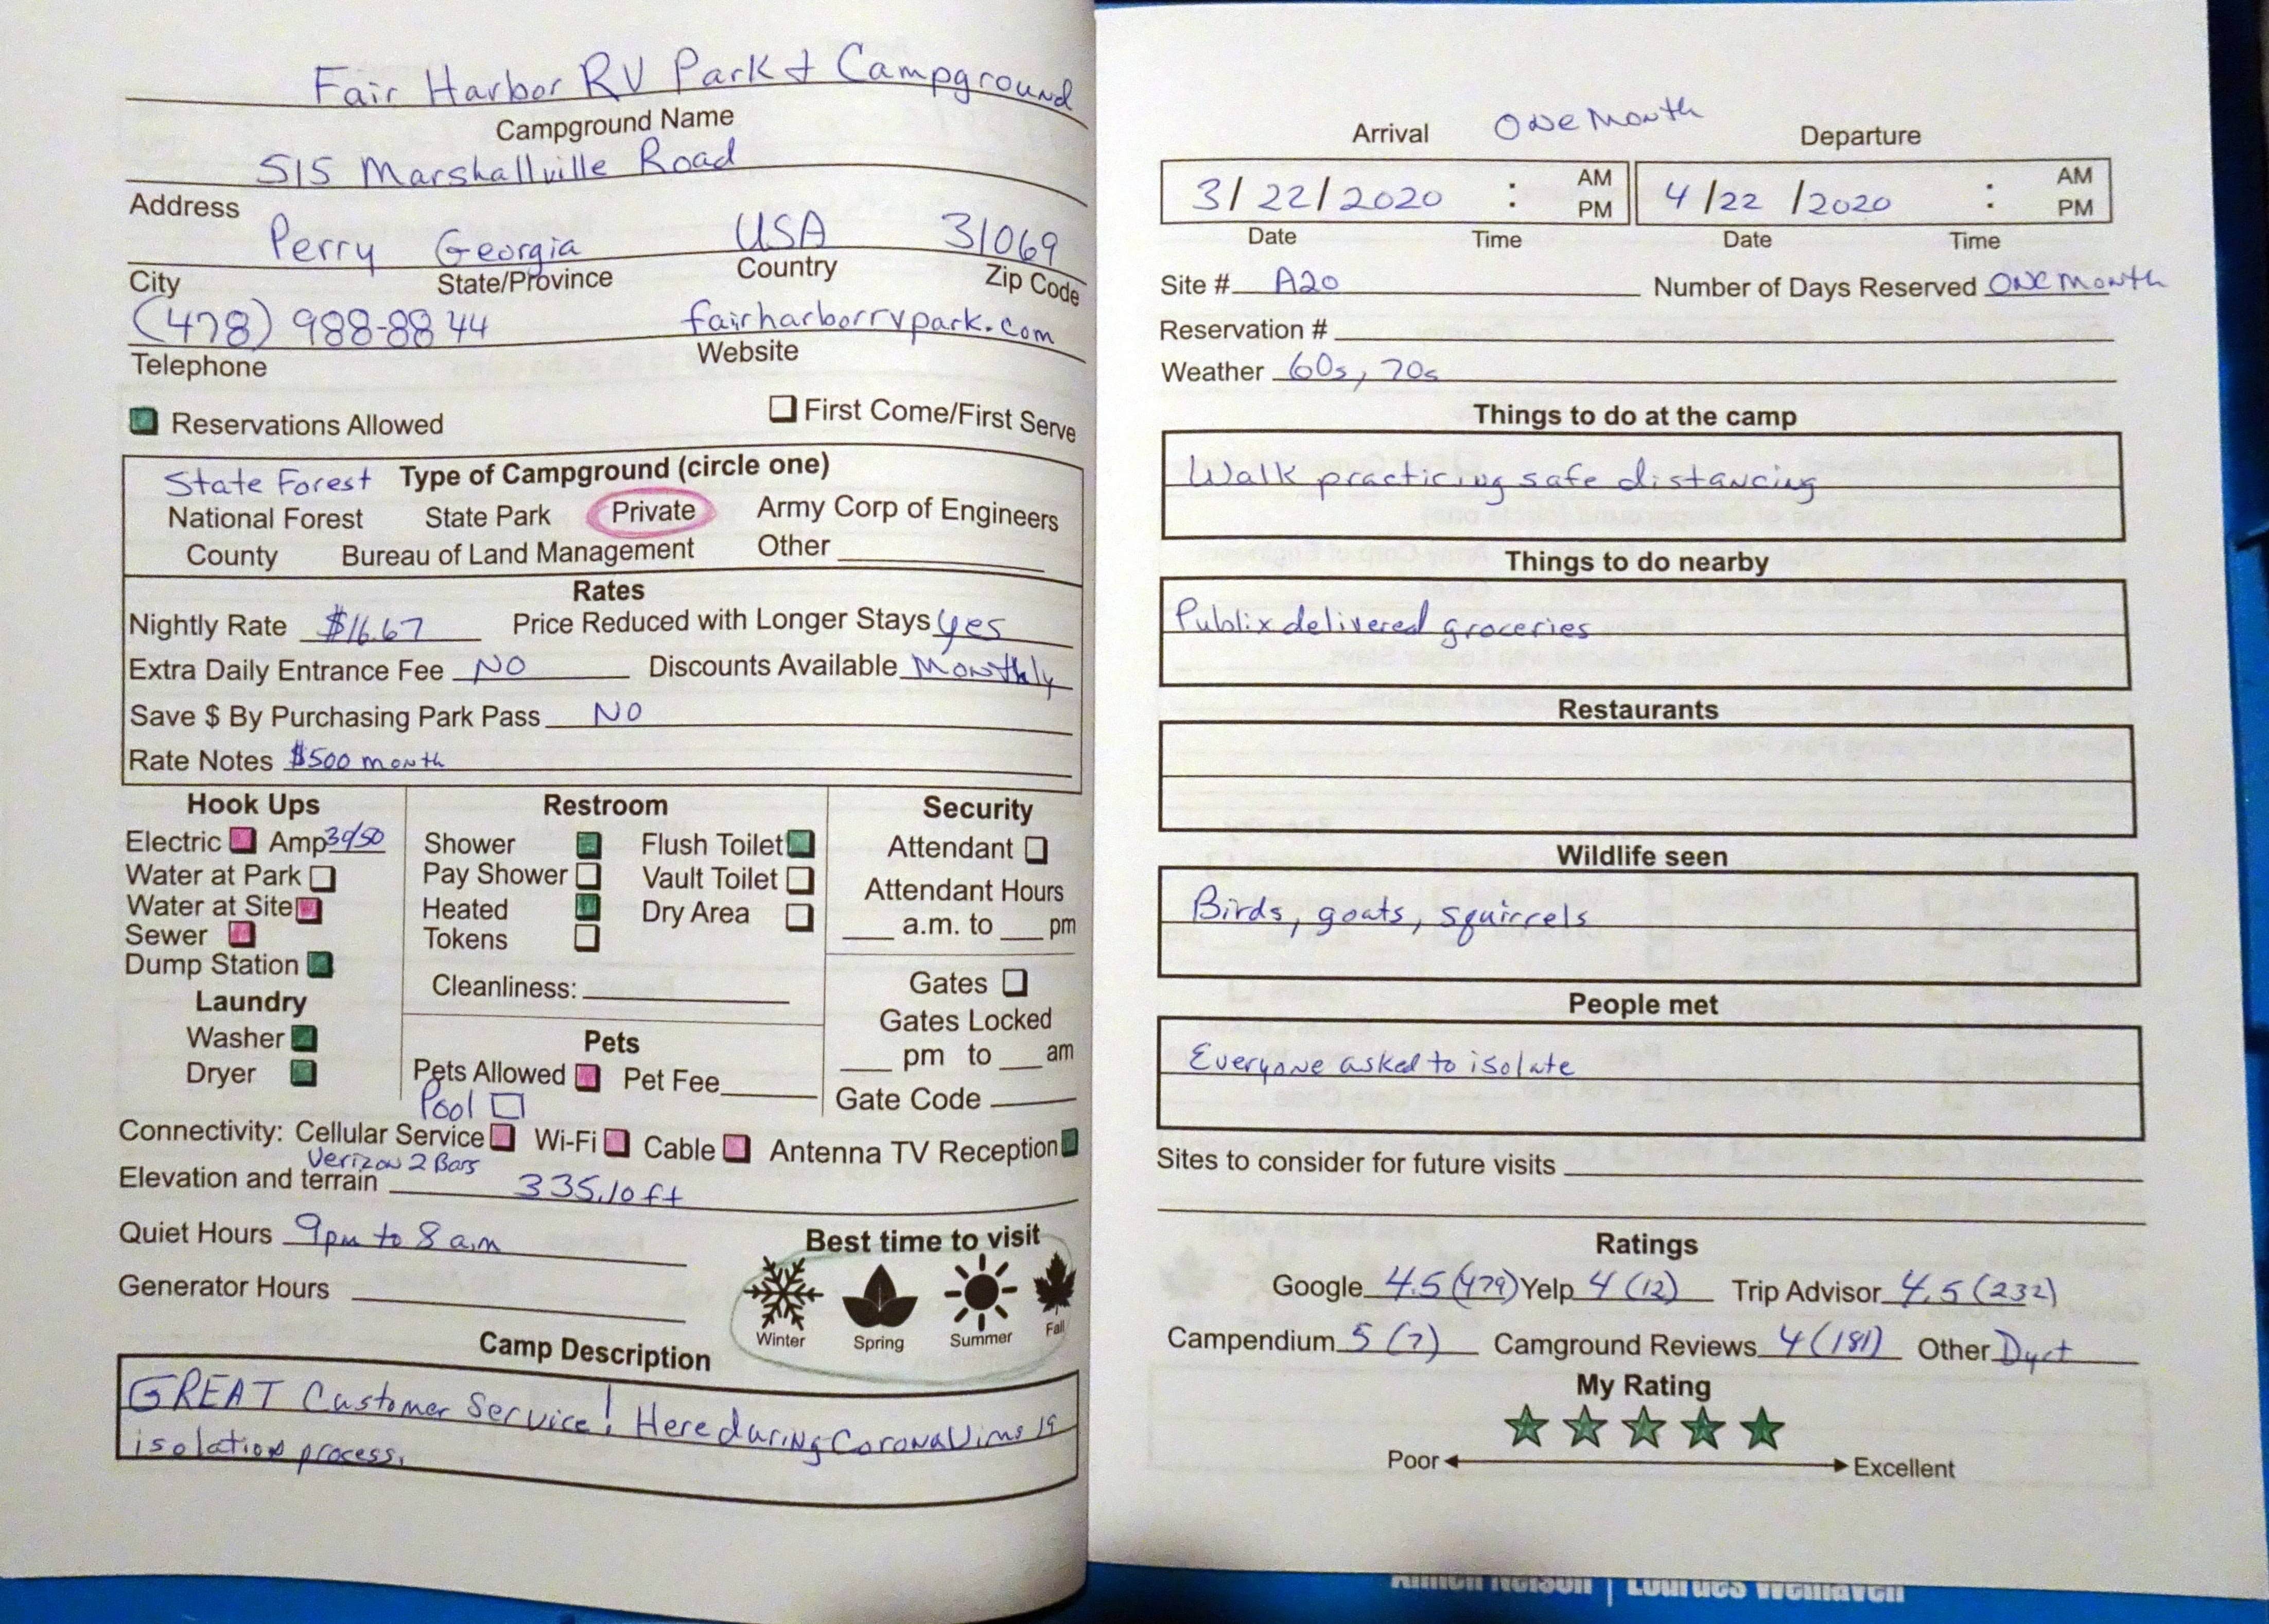 Fair Harbor RV Park & Campground
Campground Name
515 Marshallville Road
Address
Perry Georgia USA 31069
City State/Province Country Zip Code
(478) 988-8844 fairharborrvpark.com
Telephone Website
Reservations Allowed First Come/First Serve
State Forest Type of Campground (circle one)
National Forest State Park Private Army Corp of Engineers
County Bureau of Land Management Other
Rates
Nightly Rate $16.67 Price Reduced with Longer Stays yes
Extra Daily Entrance Fee NO Discounts Available Monthly
Save $ By Purchasing Park Pass NO
Rate Notes $500 month
Hook Ups
Electric Amp 30/50
Water at Park
Water at Site
Sewer
Dump Station
Laundry
Washer
Dryer
Restroom
Shower Flush Toilet
Pay Shower Vault Toilet
Heated Dry Area
Tokens
Cleanliness:
Pets
Pets Allowed Pet Fee
Pool
Security
Attendant
Attendant Hours
a.m. to pm
Gates
Gates Locked
pm to am
Gate Code
Connectivity: Cellular Service Wi-Fi Cable Antenna TV Reception
Verizon 2 Bars
Elevation and terrain 335.10 ft
Quiet Hours 9pm to 8 a.m
Generator Hours
Best time to visit
Winter Spring Summer Fall
Camp Description
GREAT Customer Service! Here during CoronaVirus 19
isolation process.
Arrival One Month Departure
3/22/2020 : AM PM 4/22/2020 : AM PM
Date Time Date Time
Site # A20 Number of Days Reserved One Month
Reservation #
Weather 60s, 70s
Things to do at the camp
Walk practicing safe distancing
Things to do nearby
Publix delivered groceries
Restaurants
Wildlife seen
Birds, goats, squirrels
People met
Everyone asked to isolate
Sites to consider for future visits
Ratings
Google 4.5 (479) Yelp 4 (12) Trip Advisor 4.5 (232)
Campendium 5 (7) Camground Reviews 4 (181) Other Dyrt
My Rating
Poor Excellent
Nelson | Lourdes Welhaven